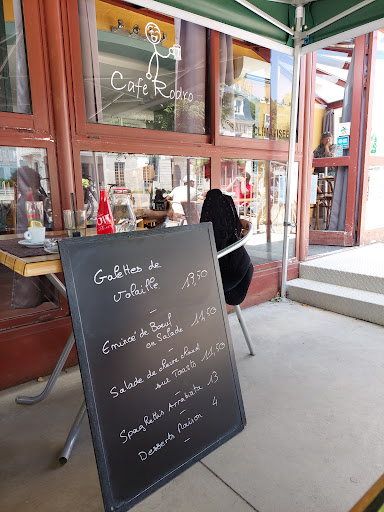 Café Rodxo
CLIMATISÉE
Galettes de
volaille 13,50
Emincé de Bœuf
en Salade 11,50
Salade de chèvre chaud
sur Toasts 11,50
Spaghettis Arrabiata 13
Desserts Maison 4